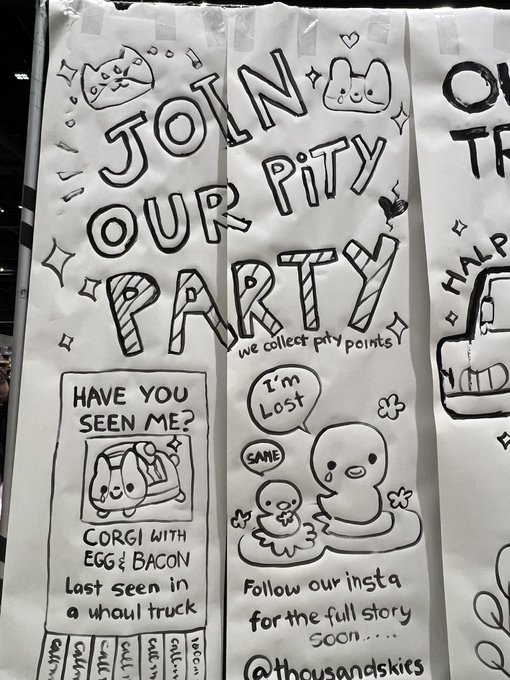 JOIN
OUR PITY
PARTY
we collect pity points
HAVE YOU
SEEN ME?
CORGI WITH
EGG & BACON
Last seen in
a uhaul truck
I'm
Lost
SAME
Follow our insta
for the full story
soon.....
@thousandskies
HALP